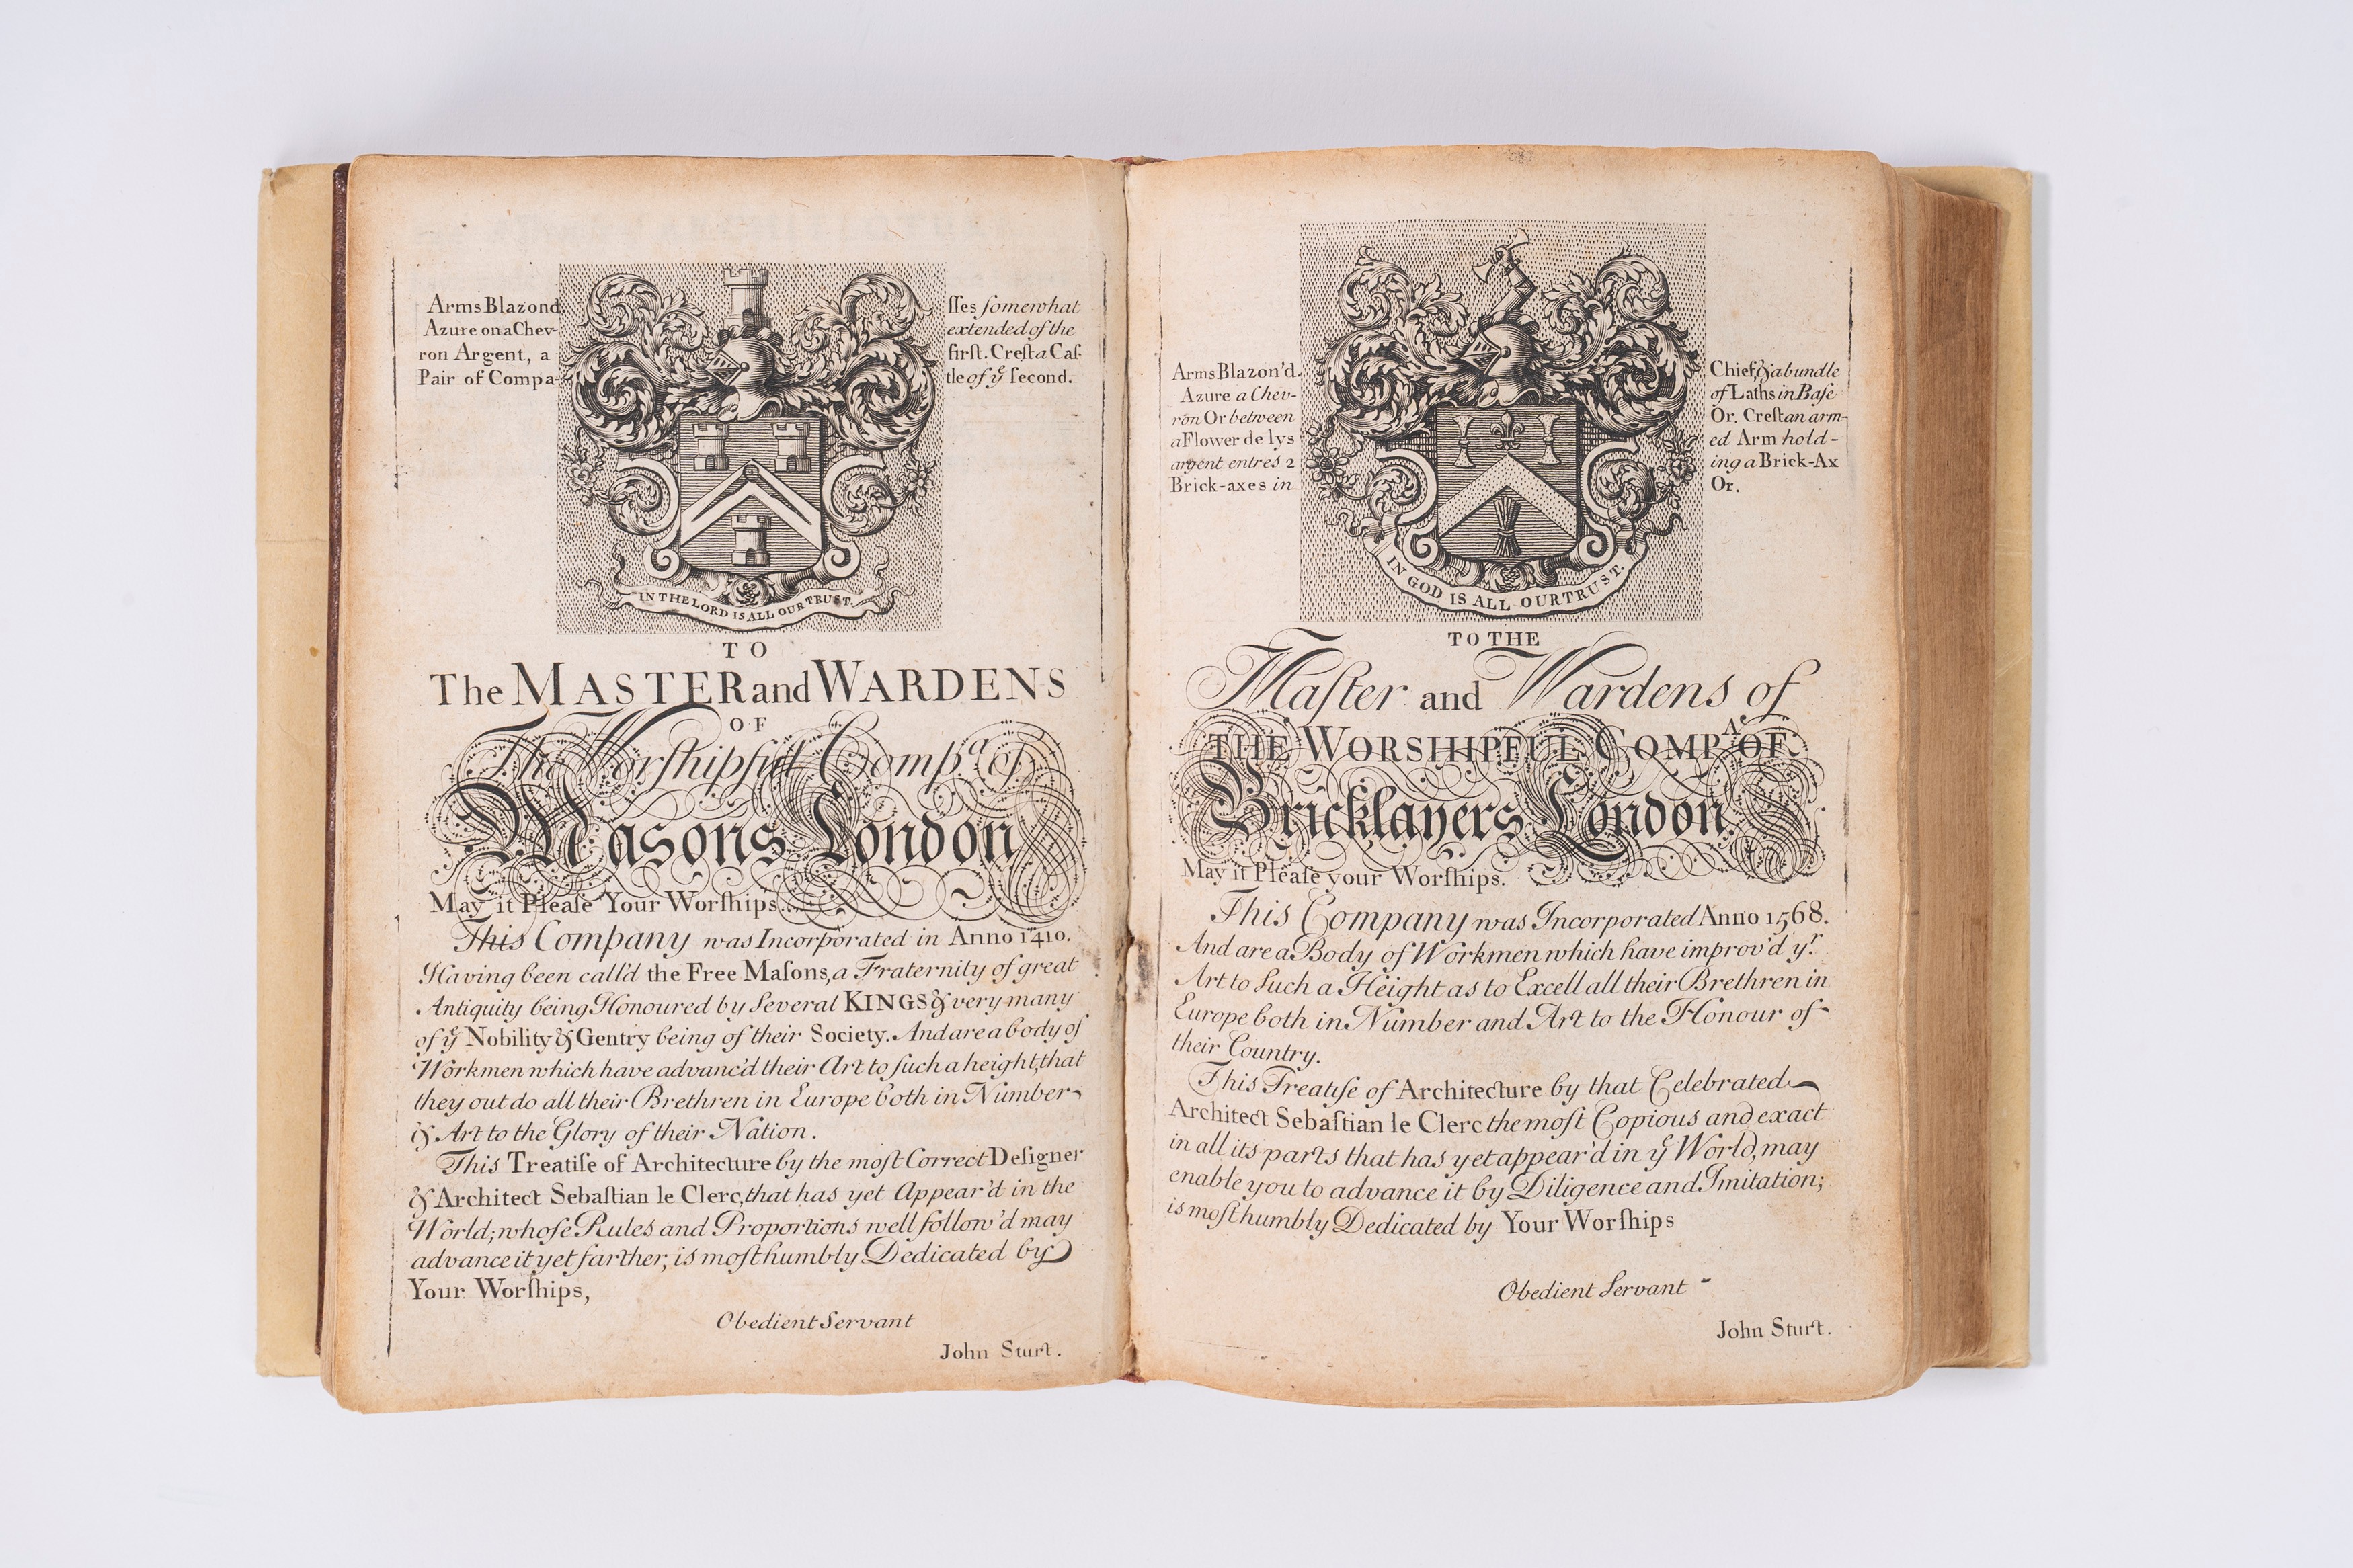 Arms Blazond.
Azure on a Chev-
ron Argent, a
Pair of Compa-
ſſes ſomewhat
extended of the
firſt. Creſt a Caſ-
tle of yͤ ſecond.
IN THE LORD IS ALL OUR TRUST.
TO
The MASTER and WARDENS
OF
The Worſhipfull Compᵃ of
Masons London
May it Pleaſe Your Worſhips.
This Company was Incorporated in Anno 1410.
Having been call'd the Free Maſons, a Fraternity of great
Antiquity being Honoured by ſeveral KINGS & very many
of yͤ Nobility & Gentry being of their Society. And are a body of
Workmen which have advanc'd their Art to ſuch a height, that
they out do all their Brethren in Europe both in Number
& Art to the Glory of their Nation.
This Treatiſe of Architecture by the moſt Correct Deſigner
& Architect Sebaſtian le Clerc, that has yet Appear'd in the
World; whoſe Rules and Proportions well follow'd may
advance it yet farther; is moſt humbly Dedicated by
Your Worſhips,
Obedient Servant
John Sturt.
Arms Blazon'd.
Azure a Chev-
ron Or between
a Flower de lys
argent entres 2
Brick-axes in
Chief & a bundle
of Laths in Baſe
Or. Creſt an arm-
ed Arm hold-
ing a Brick-Ax
Or.
IN GOD IS ALL OUR TRUST.
TO THE
Maſter and Wardens of
THE WORSHIPFUL COMPᴬ OF
Bricklayers London
May it Pleaſe your Worſhips.
This Company was Incorporated Anno 1568.
And are a Body of Workmen which have improv'd yʳ.
Art to ſuch a Height as to Excell all their Brethren in
Europe both in Number and Art to the Honour of
their Country.
This Treatiſe of Architecture by that Celebrated
Architect Sebaſtian le Clerc the moſt Copious and exact
in all its parts that has yet appear'd in yͤ World, may
enable you to advance it by Diligence and Imitation;
is moſt humbly Dedicated by Your Worſhips
Obedient Servant
John Sturt.